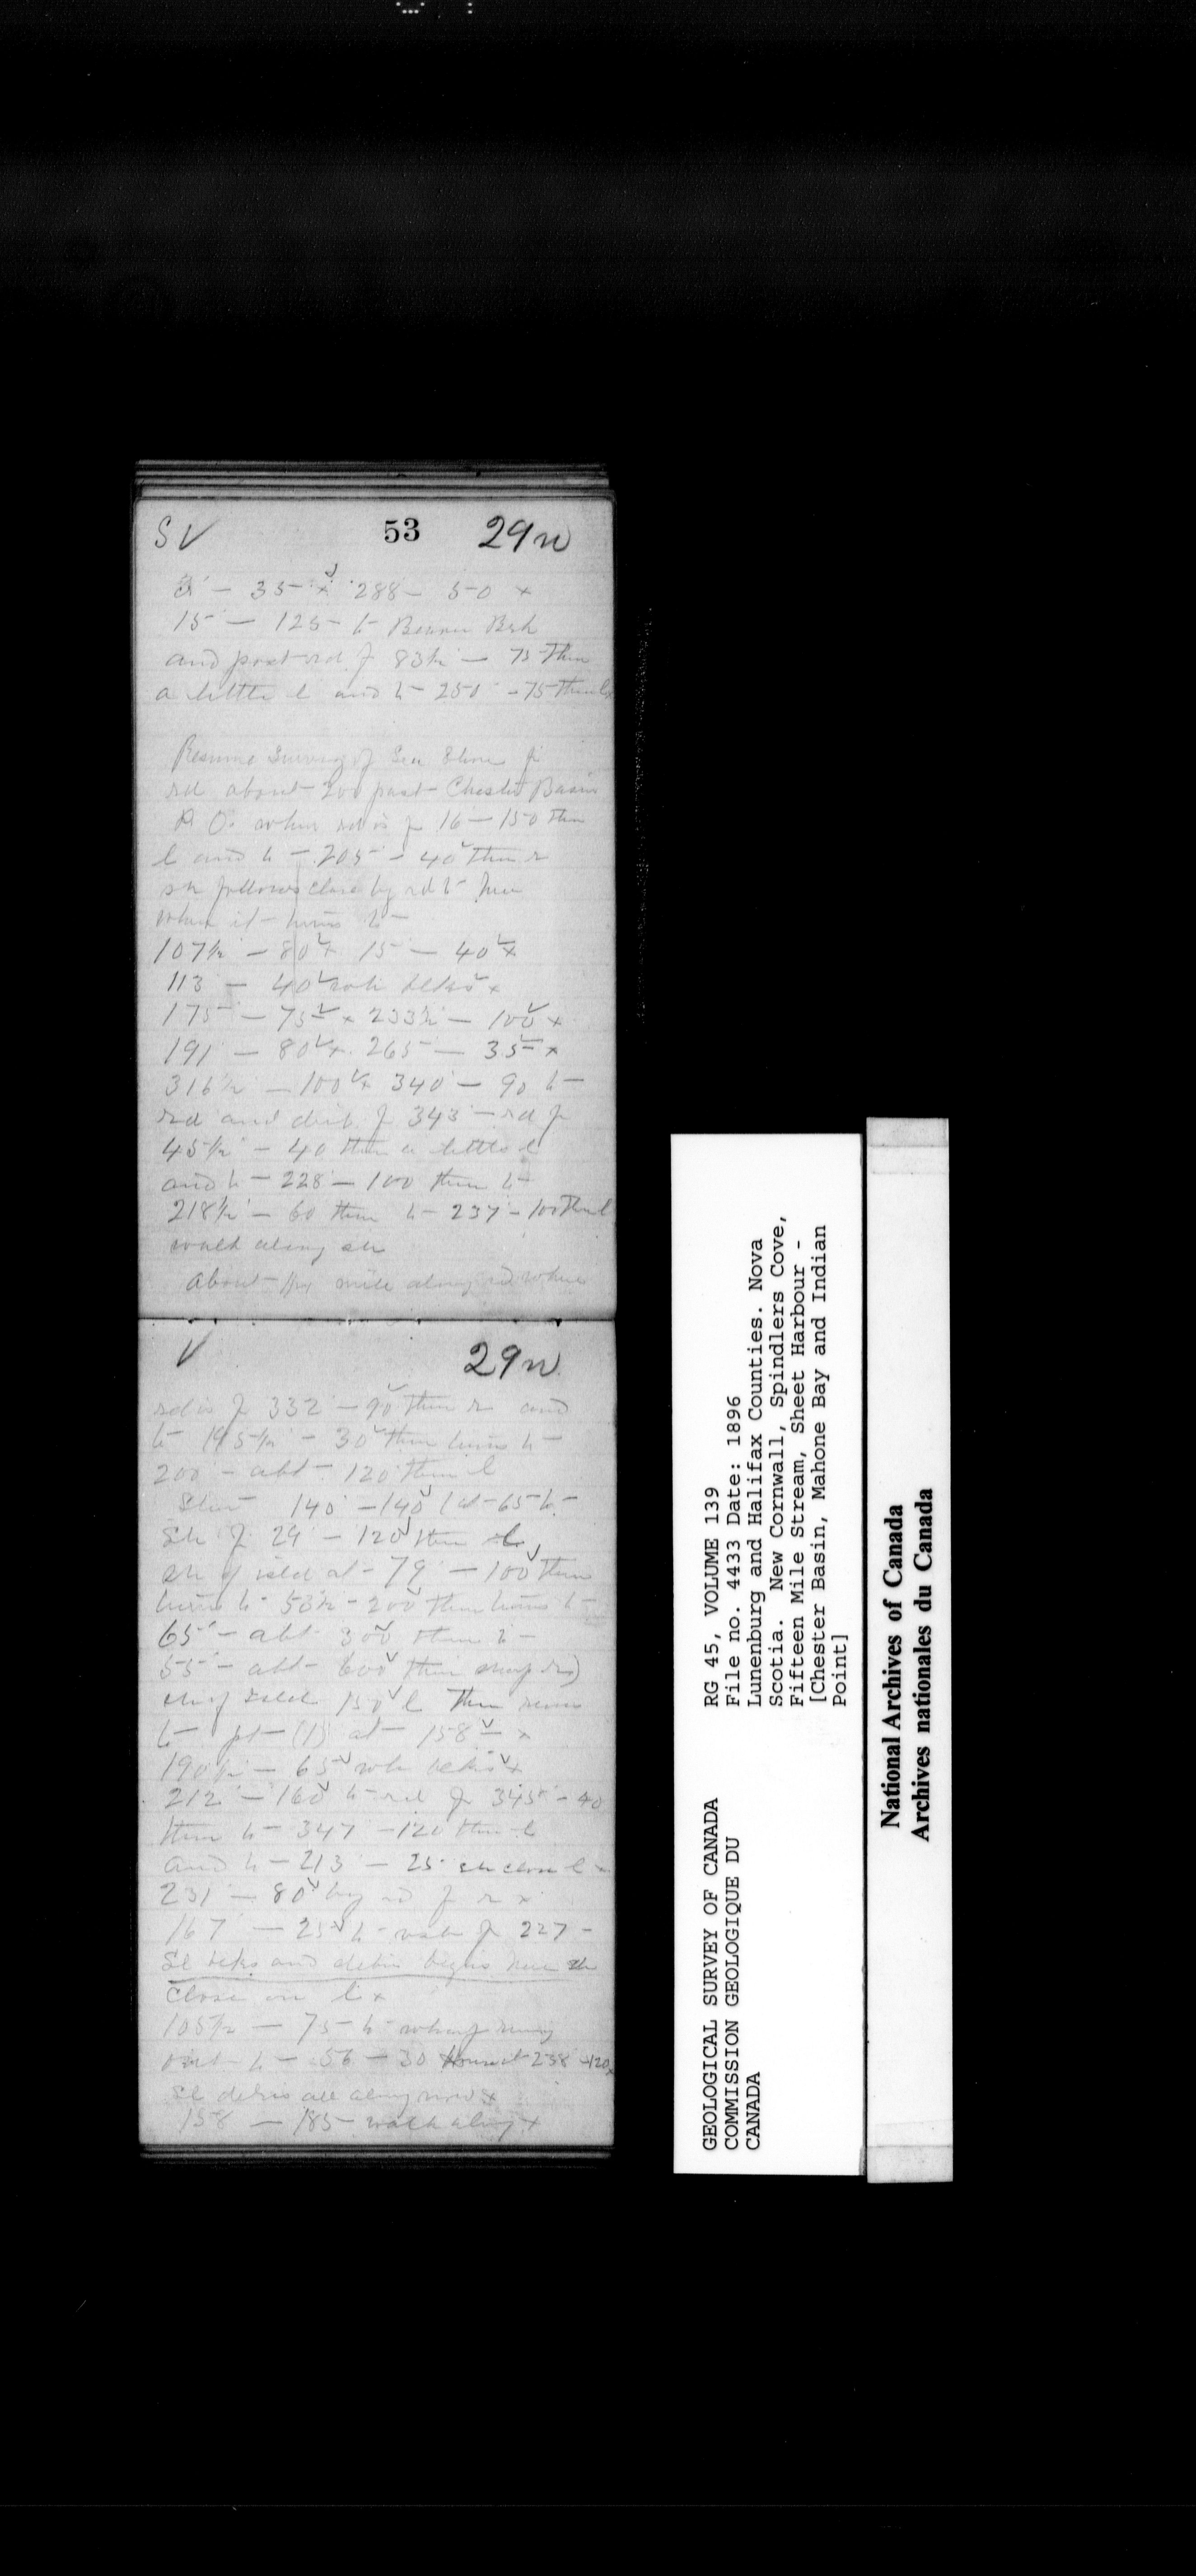 S V 53 29 n
3 - 35 x 288 - 50 x
15 - 125 to Beaver Bsh
and post rd f 83½ - 75 then
a little l and to 250 - 75 then l x
Resume Survey of Sea Shore fr
rd about 200 past Chester Basin
P.O. where rd is f 16 - 150 then
l and to 205 - 40 then r
sh follows close by rd to here
when it turns to
107½ - 80 x 15 - 40 x
113 - 40 x
175 - 75 x 233½ - 100 x
191 - 80 x 265 - 35 x
316½ - 100 x 340 - 90 to
rd and f 343 - rd f
45½ - 40 then a little l
and to 228 - 100 then to
218½ - 60 then to 237 - 100 then l
walk along sh
about mile along rd where
V 29 n
rd is f 332 - 90 then r and
to 195½ - 30 then turns to
200 - abt 120 then l
140 - 140 (at 65 to
Sh f 29 - 120 then l
sh of isld at 79 - 100 then
turns to 53½ - 200 then turns to
65 - abt 300 then to
55 - abt 600 then sharp r)
sh of isld 150 l then runs
to pt (1) at 158 x
190½ - 65 x
212 - 160 to rd f 345 - 40
then to 347 - 120 then l
and to 213 - 25 sh close l x
231 - 80 by rd f r x
167 - 25 to f 227 -
Sl and debris begins here sh
close on l x
105½ - 75 to wharf runs
out to 56 - 30 house at 238 - 120 x
Sl debris all along now x
158 - 185 walk along x
GEOLOGICAL SURVEY OF CANADA
COMMISSION GEOLOGIQUE DU
CANADA
RG 45, VOLUME 139
File no. 4433 Date: 1896
Lunenburg and Halifax Counties. Nova
Scotia. New Cornwall, Spindlers Cove,
Fifteen Mile Stream, Sheet Harbour -
[Chester Basin, Mahone Bay and Indian
Point]
National Archives of Canada
Archives nationales du Canada